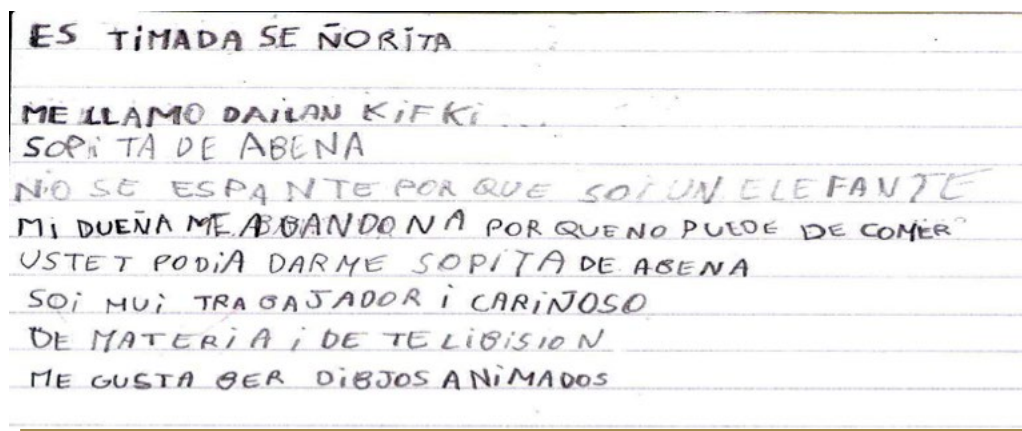 ES TiMADA SE ÑORiTA
ME LLAMO DAiLAN KiFKi ...
SOPiTA DE ABENA
NO SE ESPANTE POR QUE SOi UN ELEFANTE
Mi DUEÑA ME ABBANDONA POR QUE NO PUEDE DE COMER
USTET PODiA DARME SOPiTA DE ABENA
SOi MUi TRABAJADOR i CARiÑOSO
DE MATERiA i DE TELiBiSiON
ME GUSTA BER DiBJOS ANiMADOS